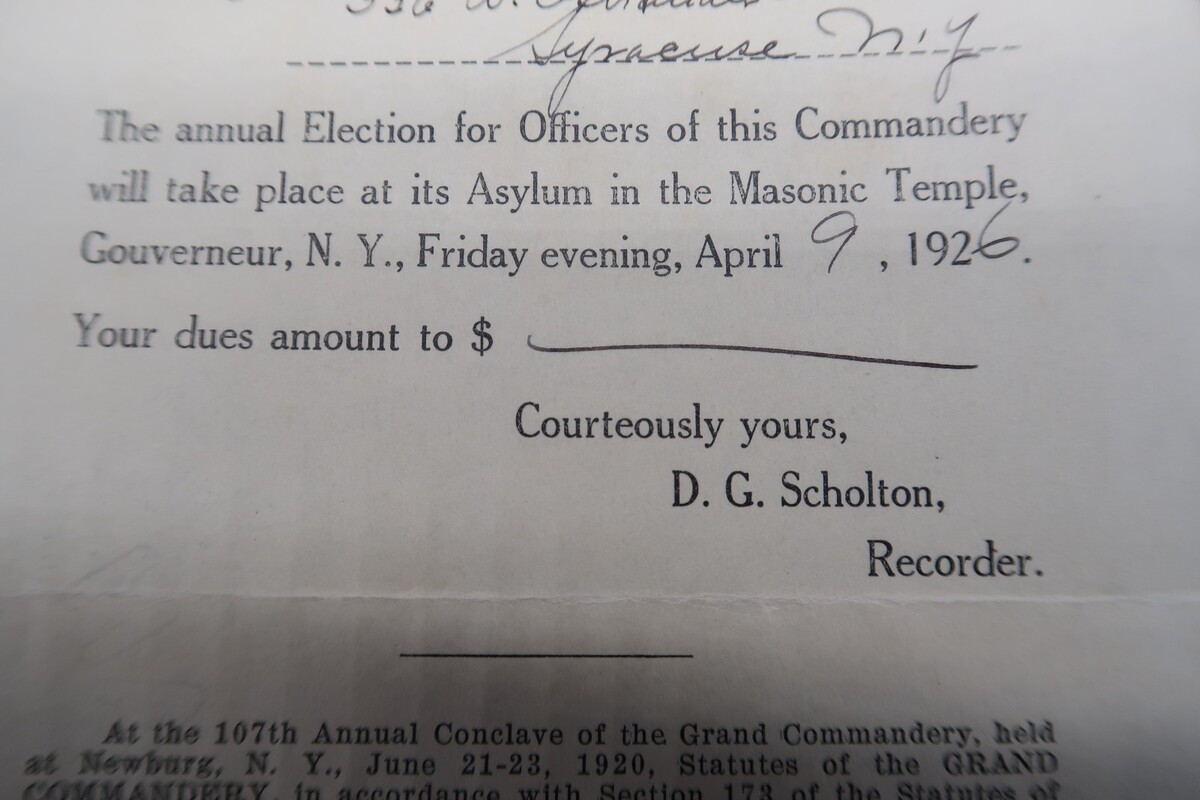 336 W.
Syracuse N.Y
The annual Election for Officers of this Commandery
will take place at its Asylum in the Masonic Temple,
Gouverneur, N. Y., Friday evening, April 9, 1926.
Your dues amount to $
Courteously yours,
D. G. Scholton,
Recorder.
At the 107th Annual Conclave of the Grand Commandery, held
at Newburg, N. Y., June 21-23, 1920, Statutes of the GRAND
COMMANDERY, in accordance with Section 173 of the Statutes of